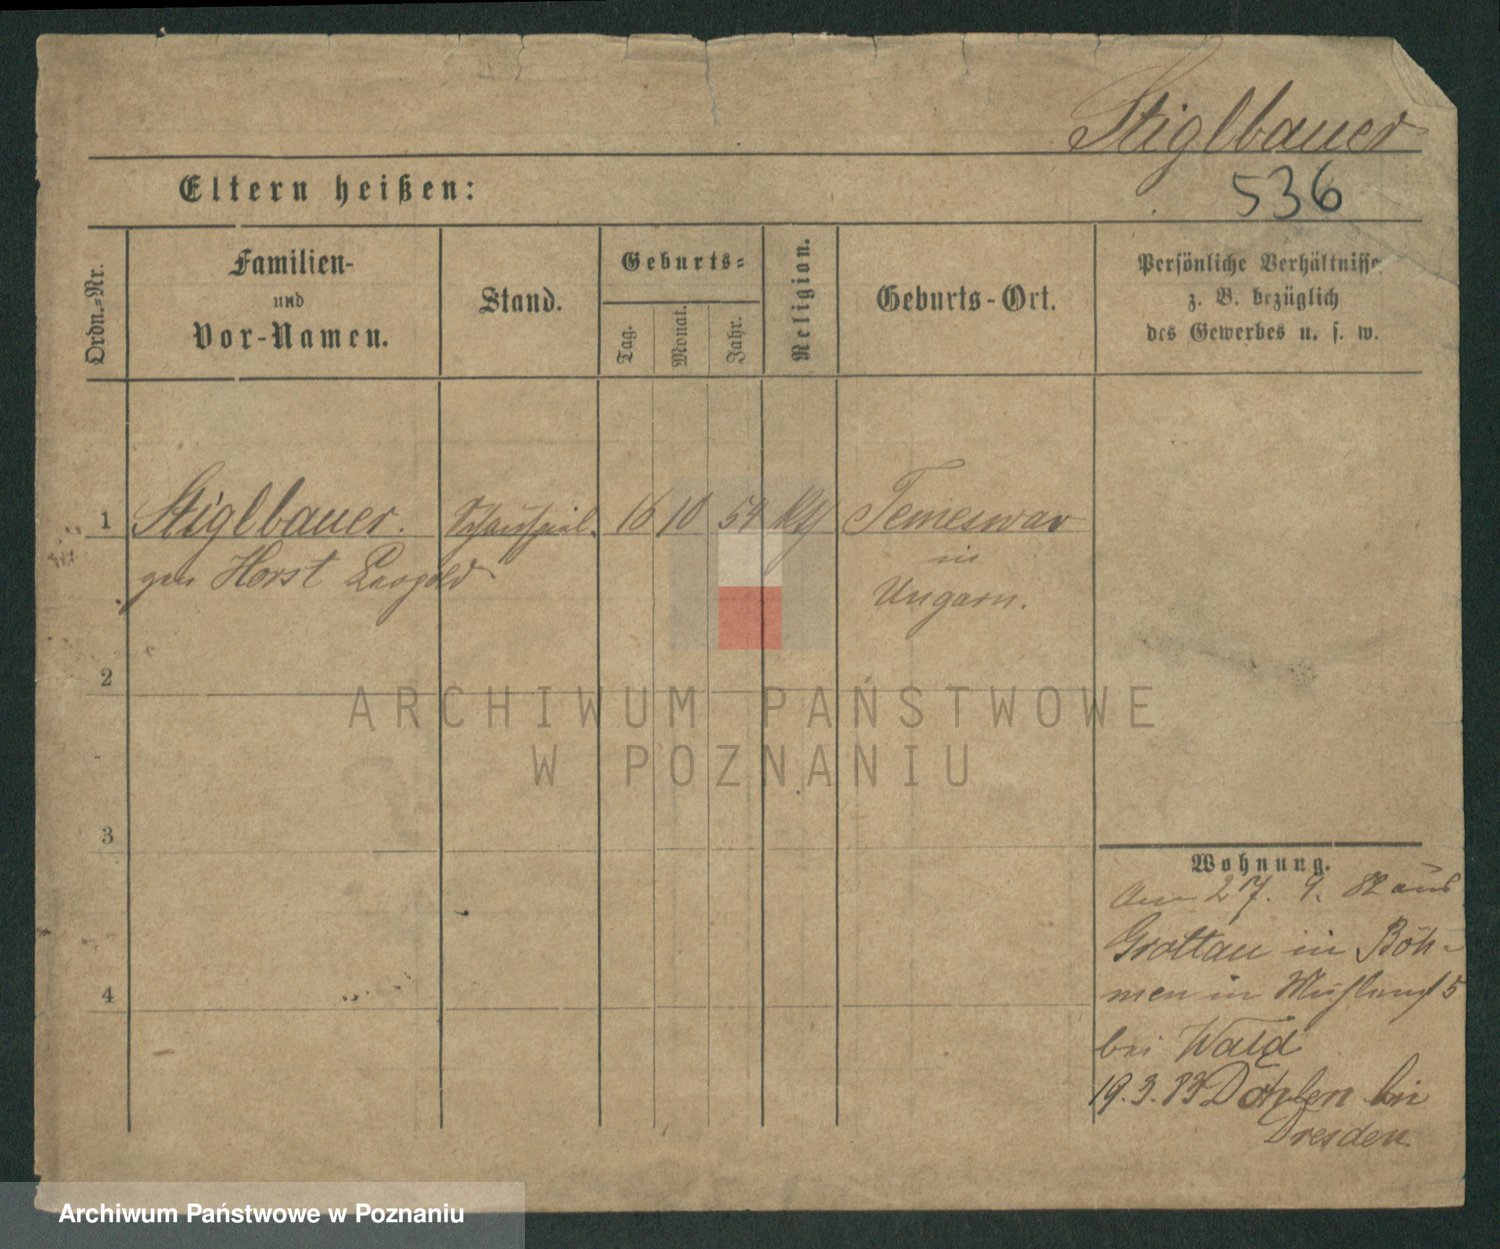 Stiglbauer
Eltern heißen:
536
Ordn.-Nr.
Familien-
und
Vor-Namen.
Stand.
Geburts-
Tag.
Monat.
Jahr.
Religion.
Geburts-Ort.
Persönliche Verhältnisse
z. B. bezüglich
des Gewerbes u. s. w.
1
Stiglbauer.
Schauspiel.
16
10
54
Temeswar
gen Horst Leopold
in
Ungarn.
2
ARCHIWUM PAŃSTWOWE
W POZNANIU
3
Wohnung.
Am 27. 9. 82 aus
Grottau in Böh-
4
men in 5
bei Wald
19.3.83 Döhlen bei
Dresden
Archiwum Państwowe w Poznaniu